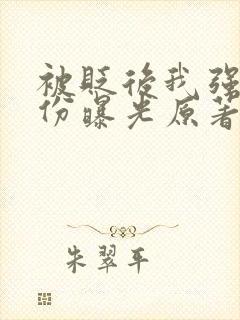 被贬后我强
份曝光原著
朱翠平